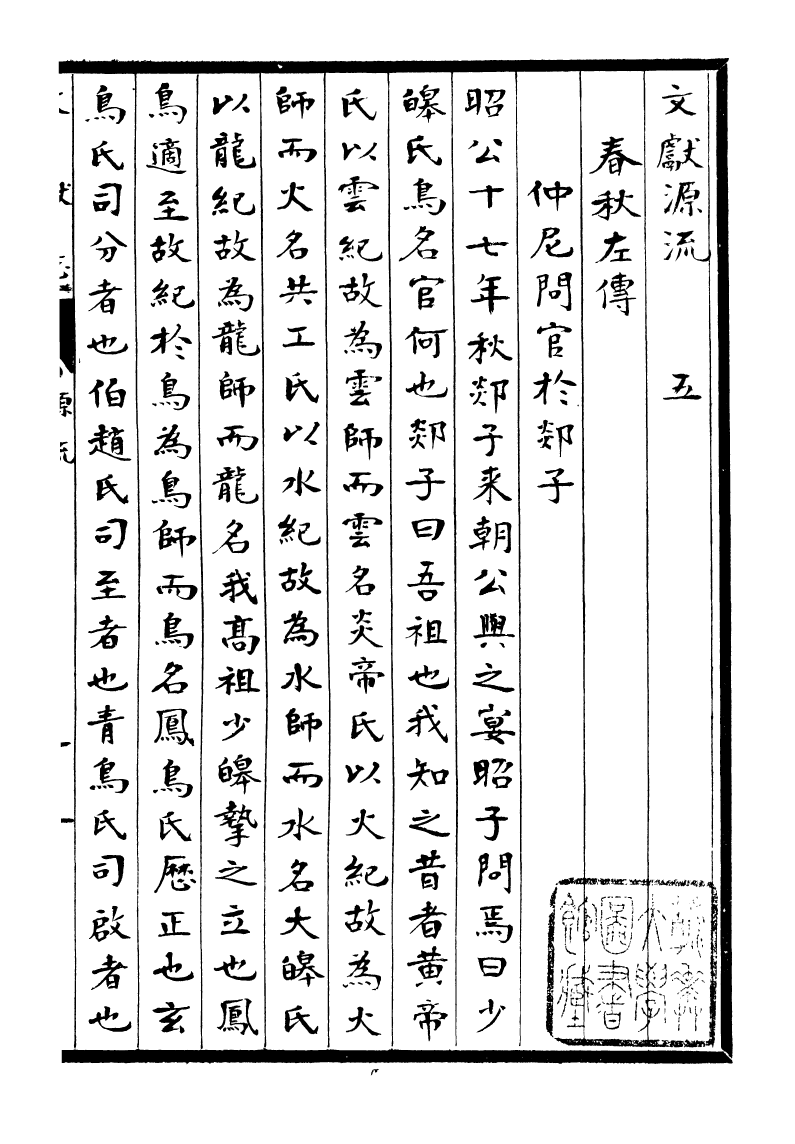 文獻源流　五
春秋左傳
仲尼問官於郯子
昭公十七年秋郯子来朝公與之宴昭子問焉曰少
皞氏鳥名官何也郯子曰吾祖也我知之昔者黄帝
氏以雲紀故為雲師而雲名炎帝氏以火紀故為火
師而火名共工氏以水紀故為水師而水名大皞氏
以龍紀故為龍師而龍名我髙祖少皞摯之立也鳳
鳥適至故紀於鳥為鳥師而鳥名鳳鳥氏厯正也玄
鳥氏司分者也伯趙氏司至者也青鳥氏司啟者也
燕京大學圖書館藏
源流